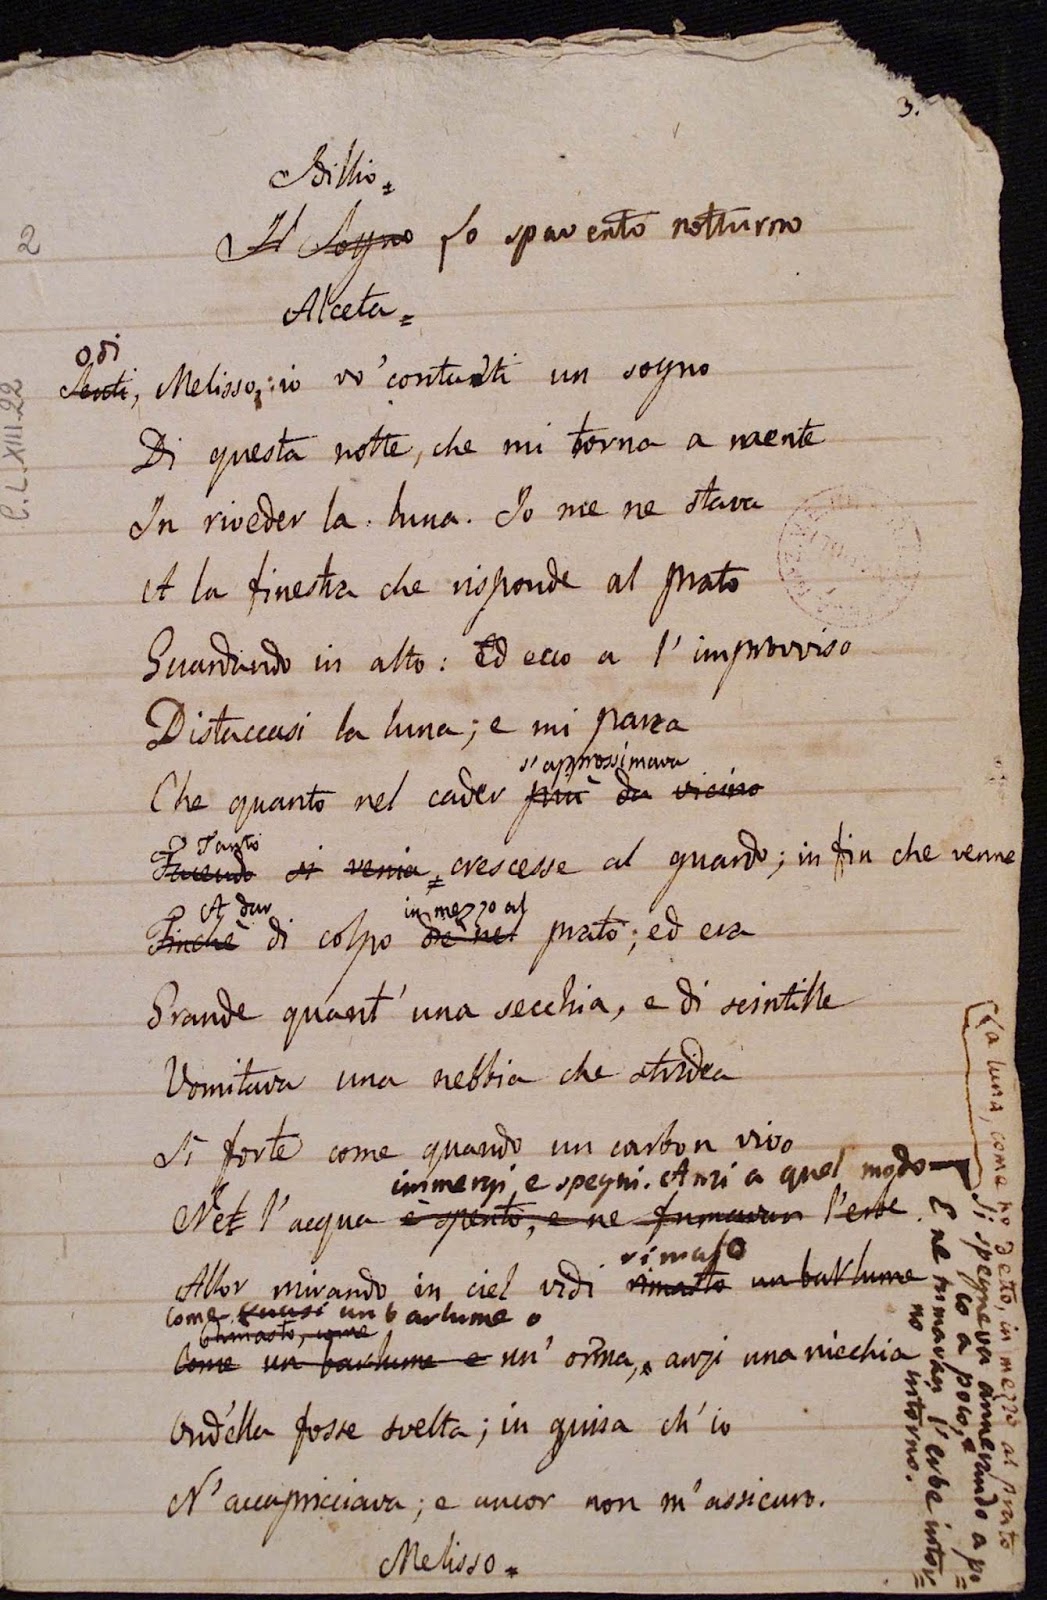 3.
Idillio.
Il Sogno Lo spavento notturno
Alceta.
Odi
Senti, Melisso; io vo' contarti un sogno
Di questa notte, che mi torna a mente
In riveder la luna. Io me ne stava
A la finestra che risponde al prato
Guardando in alto: Ed ecco a l'improvviso
Distaccasi la luna; e mi parea
s'approssimava
Che quanto nel cader più da vicino
Tanto
Facendo si venia, crescesse al guardo; in fin che venne
A dar in mezzo al
Finchè diè di colpo nel prato; ed era
Grande quant' una secchia, e di scintille
Vomitava una nebbia che stridea
Sì forte come quando un carbon vivo
immergi e spegni. Anzi a quel modo
Nel l'acqua è spento, e ne fumavan l'erbe.
rimaso
Allor mirando in ciel vidi rimasto un barlume
come quasi un barlume o
rimasto, come
Come un barlume e un' orma, anzi una nicchia
Ond'ella fosse svelta; in guisa ch'io
N'accapricciava; e ancor non m'assicuro.
Melisso.
La luna, come ho detto, in mezzo al prato
Si spegneva annerando a po=
co a poco, e
E ne fumavan l'erbe intor=
no intorno.
2
C.L.XIII.22